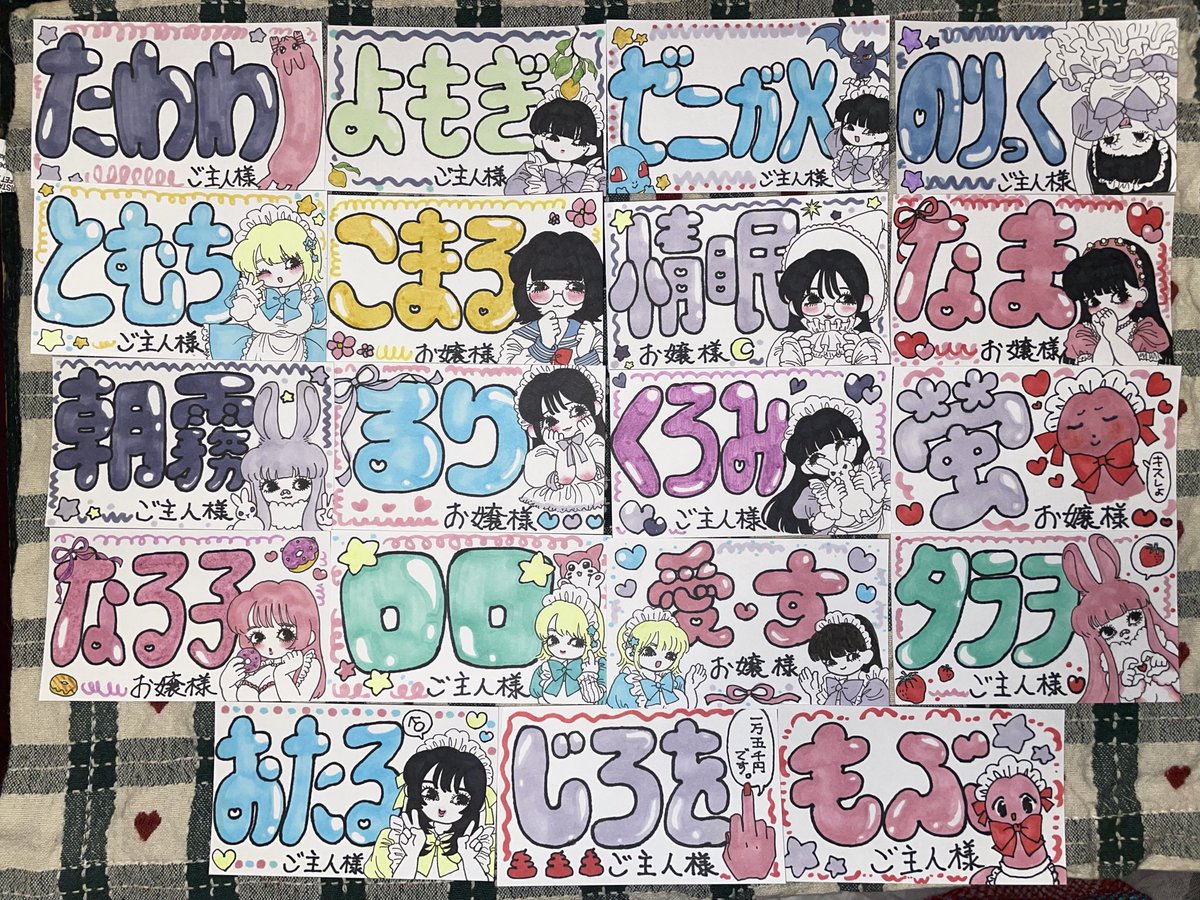 たわわ
ご主人様
よもぎ
ご主人様
ゼニガメ
ご主人様
のりっく
ご主人様
とむち
ご主人様
こまる
お嬢様
情眠
お嬢様
なま
お嬢様
朝霧
ご主人様
るり
お嬢様
くろみ
ご主人様
蛍
キスしよ
お嬢様
なる子
お嬢様
ロロ
ご主人様
愛す
お嬢様
タラヲ
ご主人様
おたる
ご主人様
じろを
一万五千円
です。
ご主人様
もぶ
ご主人様